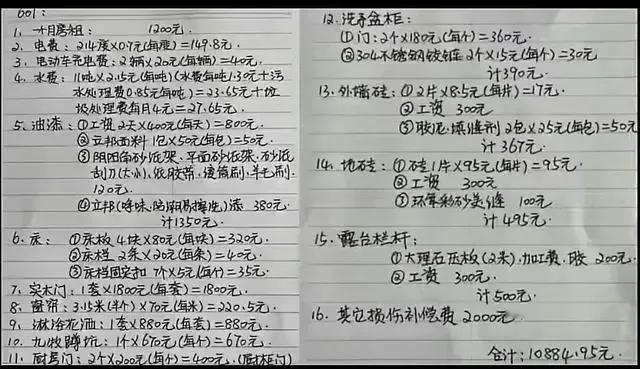 601:
1. 十月房租: 1200元.
2. 电费: 214度×0.7元(每度)=149.8元.
3. 电动车充电费: 2辆×20元(每辆)=40元.
4. 水费: 11吨×2.15元(每吨)(水费每吨1.30元+污
水处理费0.85元每吨)=23.65元+垃
圾处理费每月4元=27.65元.
5. 油漆: ①工资2天×400元(每天)=800元.
②立邦面料1包×50元(每包)=50元.
③阴阳角砂纸架、平面砂纸架、砂纸
刮刀(大小)、纸胶带、滚筒刷、羊毛刷.
120元.
④立邦(呼味、易擦洗)漆 380元.
计1350元.
6. 床: ①床板 4块×80元(每块)=320元.
②床档 2条×20元(每条)=40元.
③床档固定扣 7个×5元(每个)=35元.
7. 实木门: 1套×1800元(每套)=1800元.
8. 窗帘: 3.15米(半个)×70元(每米)=220.5元.
9. 淋浴花洒: 1套×880元(每套)=880元.
10. 九牧蹲坑: 1个×670元(每个)=670元.
11. 厨房门: 2个×200元(每个)=400元.(厨柜门)
12. 洗手盆柜:
①门: 2个×180元(每个)=360元.
②304不锈钢铰链 2个×15元(每个)=30元
计390元.
13. 外墙砖: ①2片×8.5元(每片)=17元.
②工资 300元.
③胶泥、填缝剂 2包×25元(每包)=50元
计367元.
14. 地砖: ①砖1片×95元(每片)=95元.
②工资 300元
③环氧彩砂美缝 100元
计495元.
15. 露台栏杆:
①大理石压板(2米)、加工费、胶 200元.
②工资 300元.
计500元.
16. 其它损伤补偿费 2000元.
合计: 10884.95元.